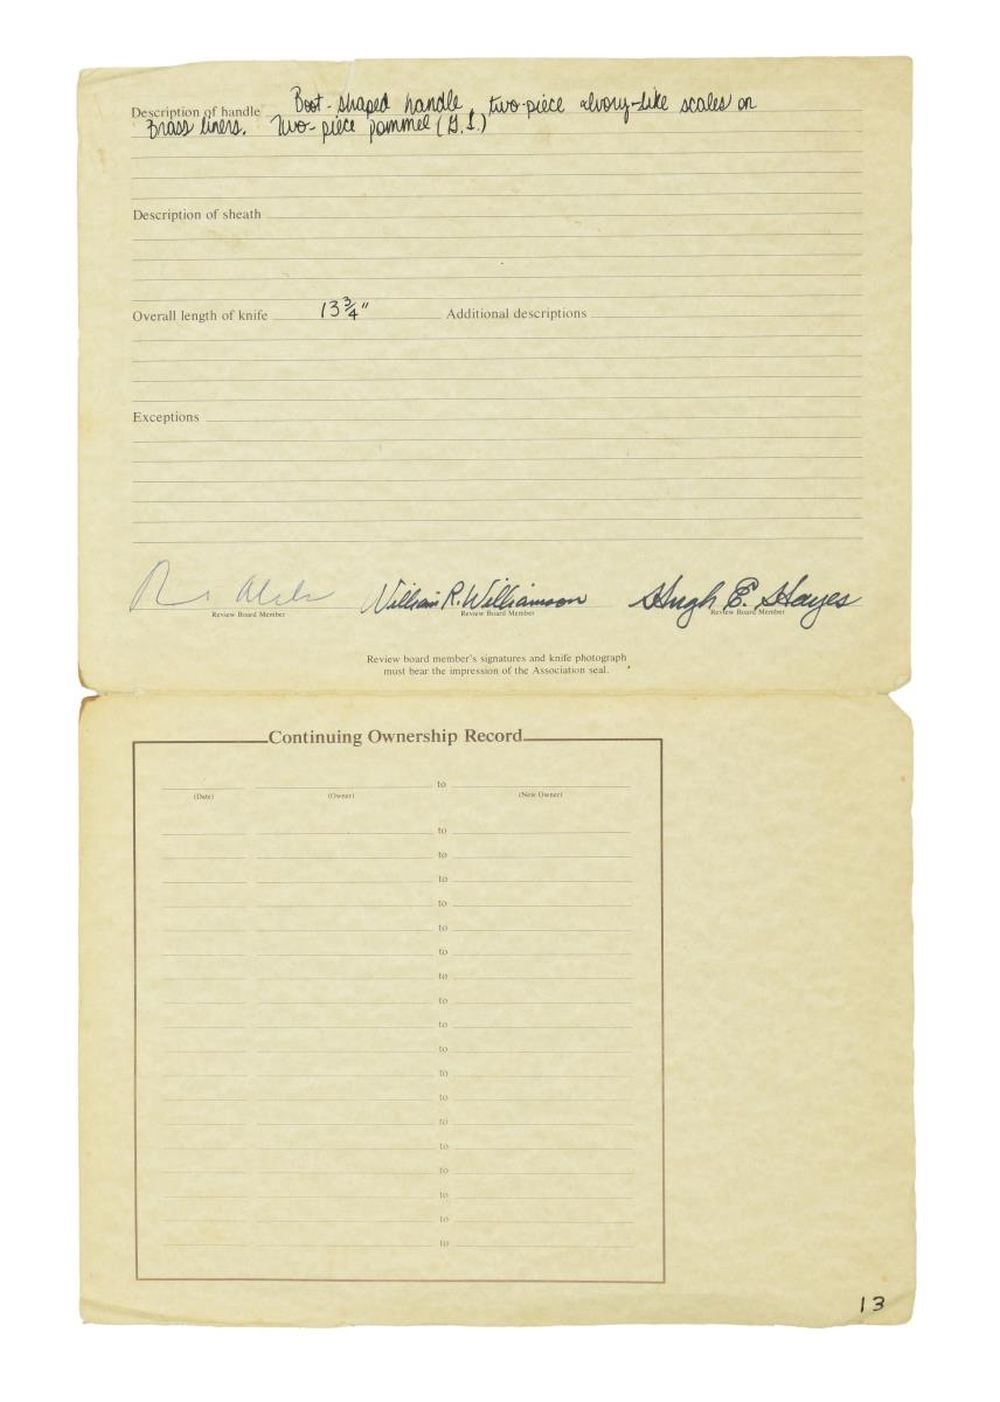 Description of handle Boot-shaped handle, two-piece ivory-like scales on
Brass liners. Two-piece pommel (G.S.)
Description of sheath
Overall length of knife 13 3/4" Additional descriptions
Exceptions
William R. Williamson Hugh E. Hayes
Review Board Member Review Board Member Review Board Member
Review board member's signatures and knife photograph
must bear the impression of the Association seal.
Continuing Ownership Record
to
(Date) (Owner) (New Owner)
to
to
to
to
to
to
to
to
to
to
to
to
to
to
to
to
to
to
13